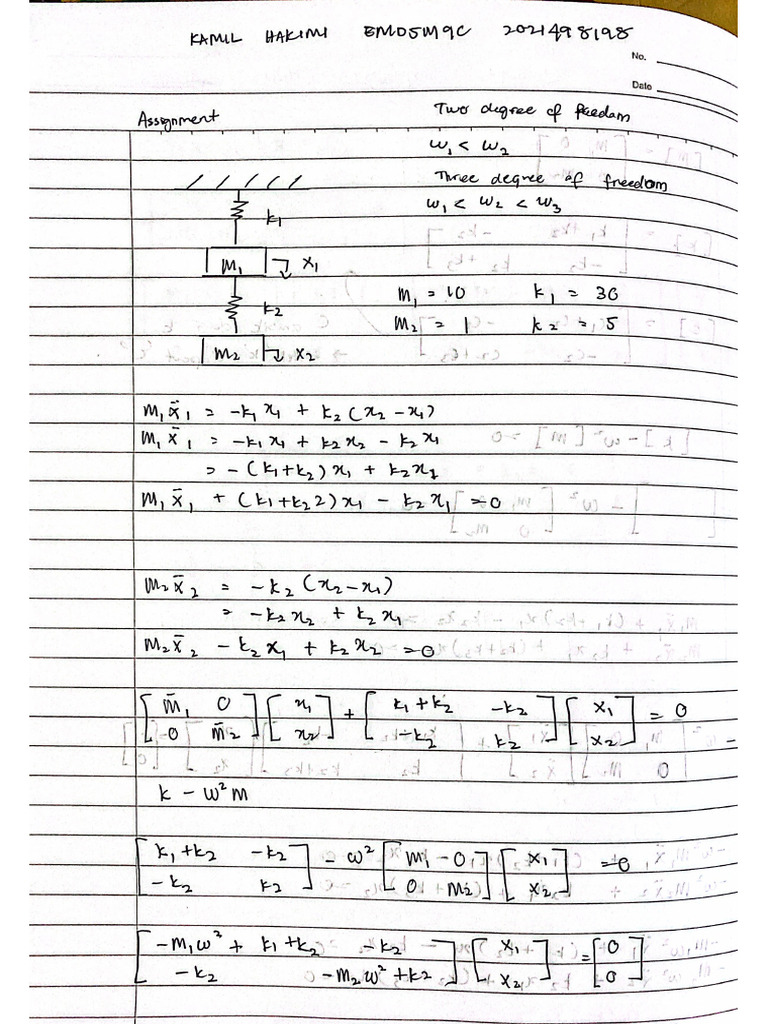 KAMIL HAKIMI EMD5M9C 2021498198
No.
Date
Assignment
Two degree of freedom
ω₁ < ω₂
Three degree of freedom
ω₁ < ω₂ < ω₃
k₁
M₁ x₁
k₂
M₂ x₂
M₁ = 10 k₁ = 30
M₂ = 1 k₂ = 5
M₁ẍ₁ = -k₁x₁ + k₂(x₂ - x₁)
M₁ẍ₁ = -k₁x₁ + k₂x₂ - k₂x₁
= -(k₁+k₂)x₁ + k₂x₁
M₁ẍ₁ + (k₁+k₂2)x₁ - k₂x₁ = 0
M₂ẍ₂ = -k₂(x₂-x₁)
= -k₂x₂ + k₂x₁
M₂ẍ₂ - k₂x₁ + k₂x₂ = 0
[m̄₁ 0] [x₁] + [k₁+k₂ -k₂] [x₁] = 0
[0 m̄₂] [x₂] [-k₂ k₂] [x₂]
k - ω²m
[k₁+k₂ -k₂] - ω² [m₁ - 0] [x₁] = 0
[-k₂ k₂] [0 M₂] [x₂]
[-M₁ω² + k₁+k₂ -k₂] [x₁] = [0]
[-k₂ -M₂ω²+k₂] [x₂] [0]